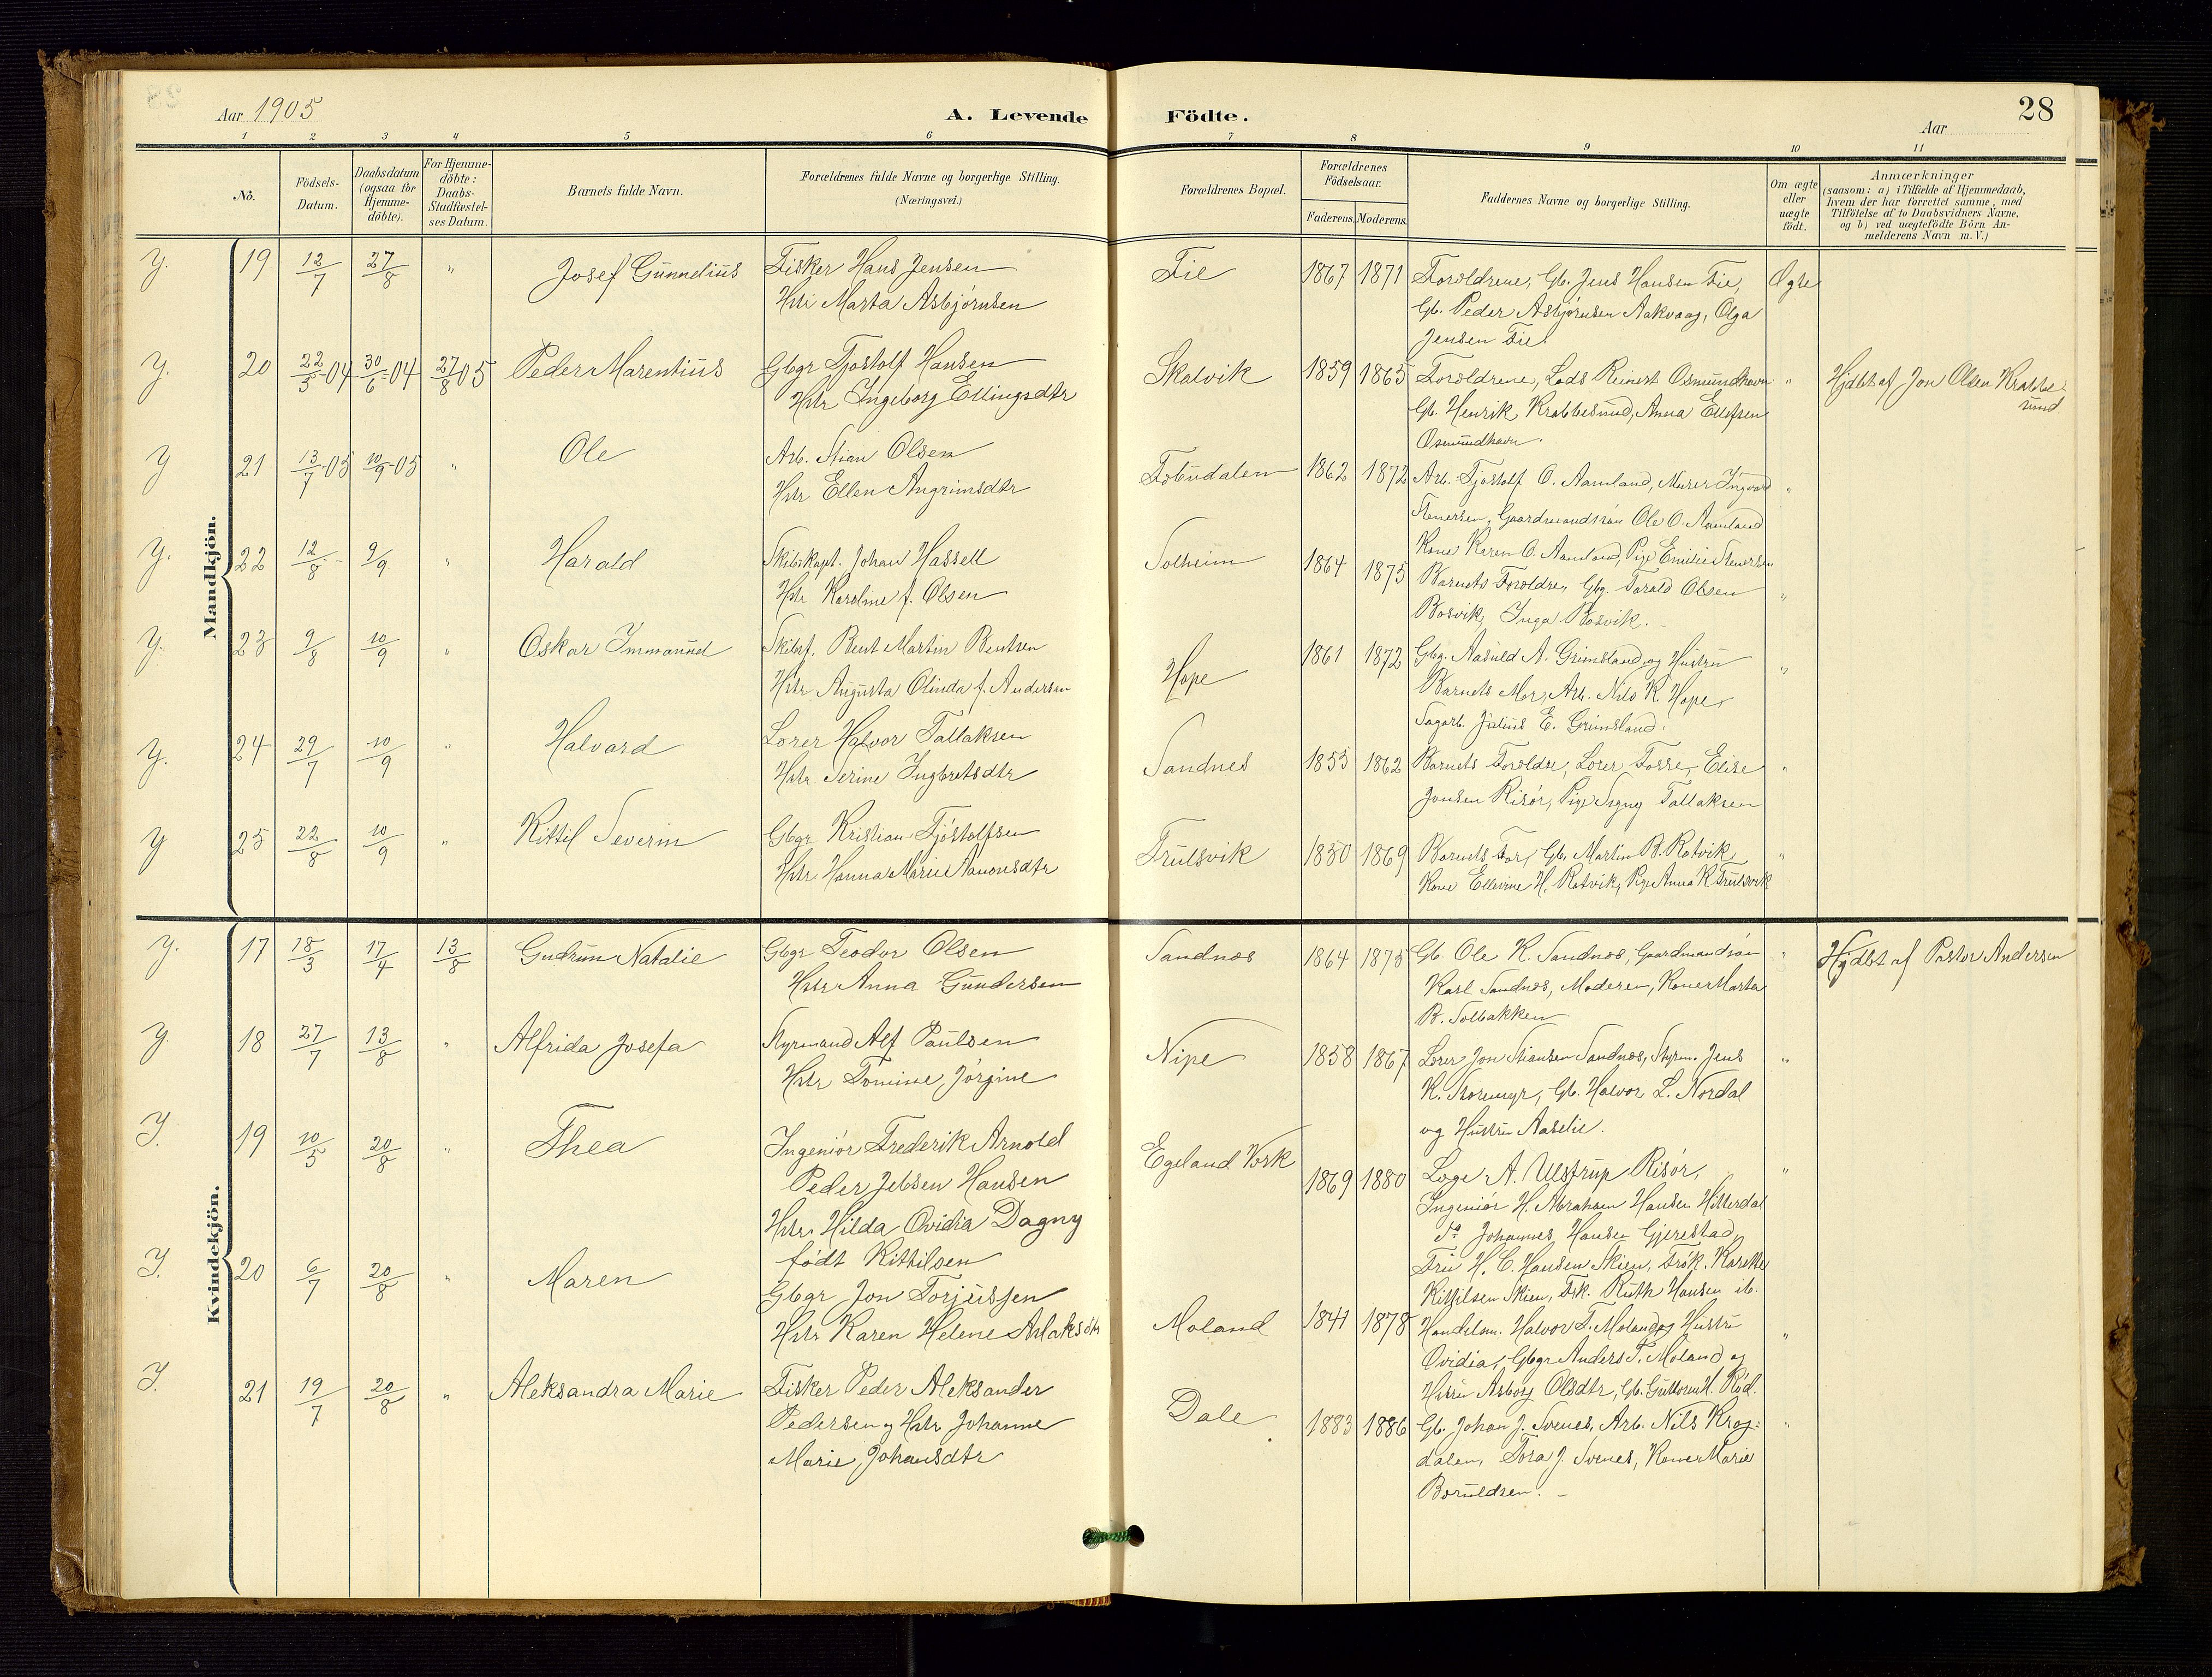 28
Aar 1905
A. Levende Födte.
Aar
1 2 3 4 5 6 7 8 9 10 11
No.
Födsels-Datum.
Daabsdatum (ogsaa for Hjemme-döbte).
For Hjemme-döbte: Daabs-Stadfæstel-ses Datum.
Barnets fulde Navn.
Forældrenes fulde Navne og borgerlige Stilling. (Næringsvei.)
Forældrenes Bopæl.
Forældrenes Födselsaar.
Faderens. Moderens.
Faddernes Navne og borgerlige Stilling.
Om ægte eller uægte født.
Anmærkninger
(saasom: a) i Tilfælde af Hjemmedaab,
hvem der har forrettet samme, med
Tilföielse af to Daabsvidners Navne.
og b) ved uægtefödte Börn An-
melderens Navn m. V.)
Mandkjön.
Y. 19 12/7 27/8 " Josef Gunnelius Fisker Hans Jensen Fie 1867 1871 Foreldrene, Gb. Jens Hansen Fie, Ægte
Marta Asbjörnsen Gb. Peder Asbjörnsen Aakvaag, Olga
Jensen Fie.
Y. 20 22/5-04 30/6-04 27/8 05 Peder Marentius Gbgr Tjostolf Hansen Skalvik 1859 1865 Foreldrene, Lods Reinert Osmundhavn " Hjdbt af Jon Olsen Krabbe-
sund
Hstr Ingeborg Ellingsdtr Gb. Henrik Krabbesund, Anna Ellefsen
Osmundhavn.
Y 21 13/7-05 10/9-05 " Ole Arb. Stian Olsen 1862 1872 Arb. Tjostolf O. Aamland, Murer Ingvard "
Hstr Ellen Angrimsdtr Stenersen, Gaardmandssön Ole O. Aamland
Kone Karen O. Aamland, Pige Emilie Stenersen
Y. 22 12/8 9/9 " Harald Skibskapt. Johan Hassell Solheim 1864 1875 Barnets Foreldre, Gbg. Torald Olsen "
Hstr Karoline f. Olsen Bosvik, Inga Bosvik.
Y. 23 9/8 10/9 " Oskar Immanuel Skibsf. Bent Martin Bentsen Hope 1861 1872 Gbg. Aasuld A. Grimsland og Hustru "
Hstr Augusta Olinda f. Andersen Barnets Mor, Arb. Nils K. Hope,
Sagarb. Julius E. Grimsland.
Y. 24 29/7 10/9 " Halvard Lærer Halvor Tallaksen Sandnes 1855 1862 Barnets Foreldre, Lærer Fosse, Elise "
Hstr. Serine Ingbretsdtr Jonsen Risör, Pige Signy Tallaksen
Y 25 22/8 10/9 " Kittil Severin Gbgr Kristian Tjöstolfsen Trulsvik 1850 1869 Barnets Far, Gb. Martin B. Rotvik, "
Hstr Hanna Marie Aanonsdtr Kone Ellevine H. Rotvik, Pige Anna K. Trulsvik
Kvindekjön.
Y. 17 18/3 17/4 13/8 Gudrun Natalie Gbgr Teodor Olsen Sandnes 1864 1875 Gb. Ole K. Sandnes, Gaardmandsön " Hjdbt af Pastor Andersen
Hstr Anna Gundersen Karl Sandnes, Moderen, Kone Marta
B. Solbakken
Y. 18 27/7 13/8 " Alfrida Josefa Styrmand Alf Paulsen Nipe 1858 1867 Lærer Jon Stiansen Sandnes, Styrm. Jens "
Hstr Tomine Jörgine K. Storemyr, Gb. Halvor L. Nordal
og Hustru Aaselie.
Y. 19 10/5 20/8 " Thea Ingeniör Frederik Arnold Egeland Verk 1869 1880 Læge A. Ulstrup Risör, "
Peder Jebsen Hansen Ingeniör H. Abraham Hansen Hitterdal
Hstr. Hilda Ovidia Dagny Do Johannes Hansen Gjerestad,
födt Kittilsen Fru H. C. Hansen Skien, Frök. Karske
Kittilsen Skien, Frk. Ruth Hansen ib.
Y. 20 6/7 20/8 " Maren Gbgr Jon Torjussen Moland 1841 1878 Handelsm. Halvor T. Moland og Hustru "
Hstr Karen Helene Aslaksdtr Ovidia, Gbgr Anders T. Moland og
Hustru Asborg Olsdtr, Gb. Guttorm H. Röd.
Y. 21 19/7 20/8 " Aleksandra Marie Fisker Peder Aleksander Dale 1883 1886 Gb. Johan J. Svenes, Arb. Nils Krog- "
Pedersen og Hstr Johanne dalen, Tora J. Svenes, Kone Marie
Marie Johansdtr Boruldsen.